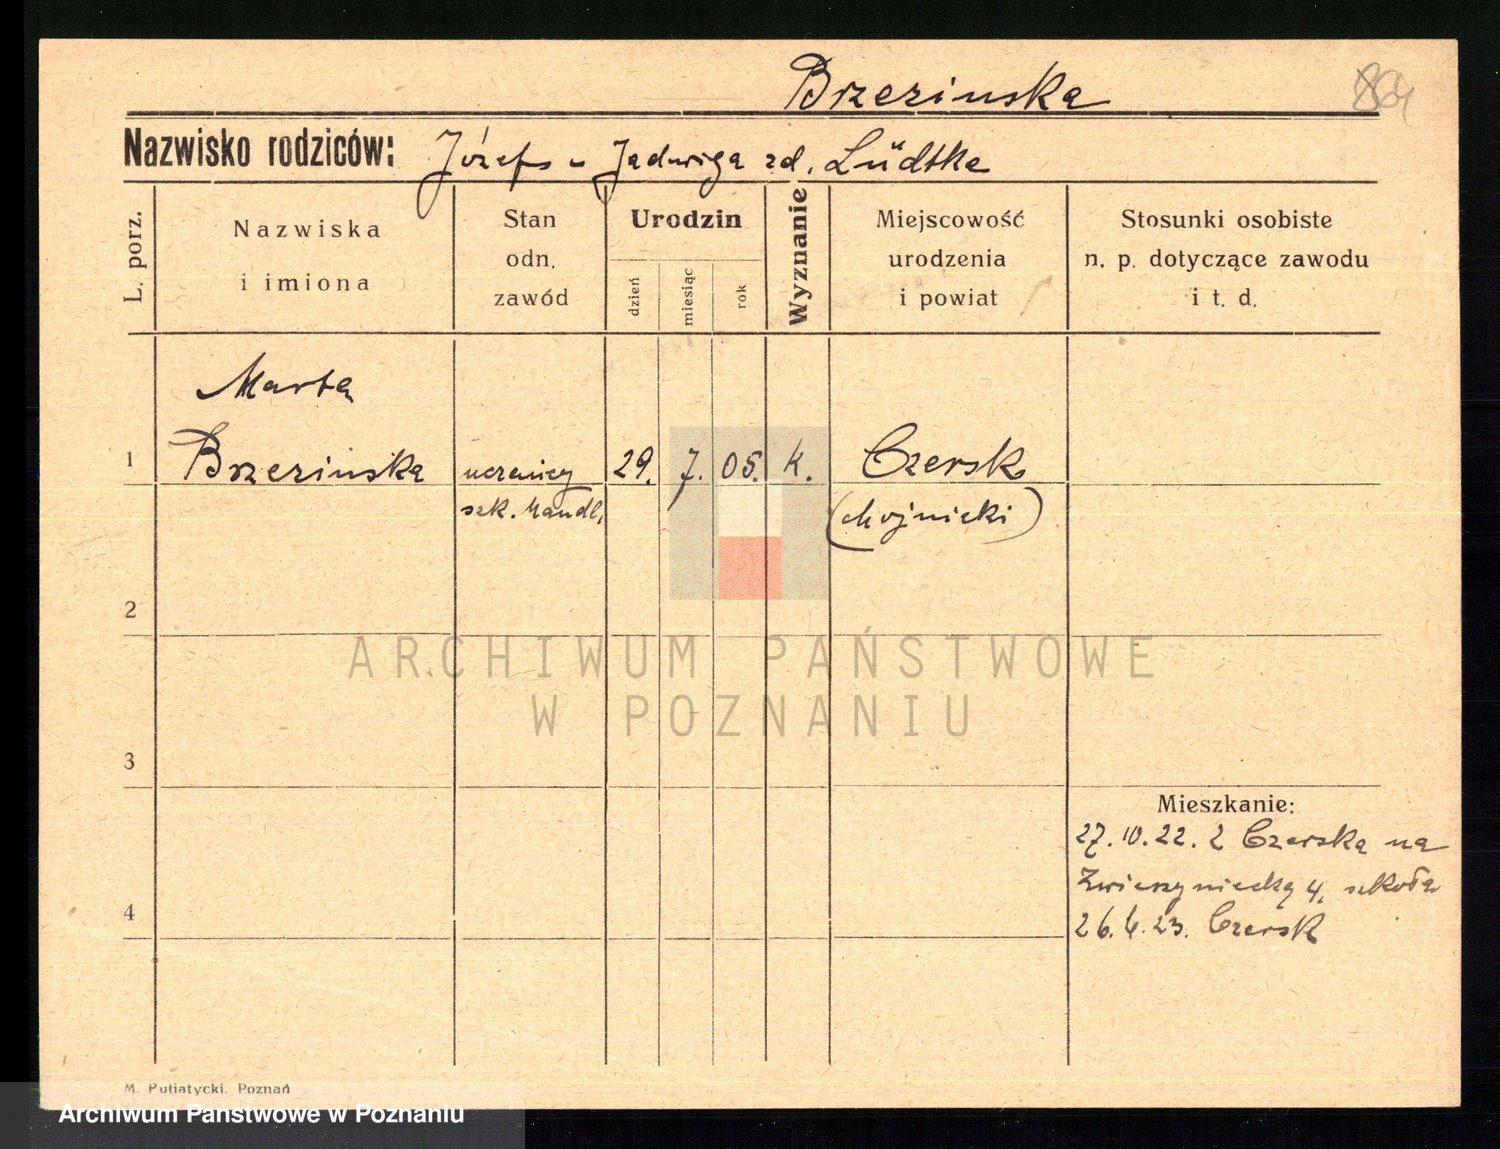 Brzezinska
884
Nazwisko rodziców: Józefs u Jadwiga zd. Lüdtke
L. porz.
Nazwiska
i imiona
Stan
odn.
zawód
Urodzin
dzień
miesiąc
rok
Wyznanie
Miejscowość
urodzenia
i powiat
Stosunki osobiste
n. p. dotyczące zawodu
i t. d.
Marta
1 Brzezinska 29. 7. 05. k. Czersk
szk. Handl. (chojnicki)
2
ARCHIWUM PAŃSTWOWE
W POZNANIU
3
Mieszkanie:
27.10.22. z Czerska na
Zwierzyniecką 4, szkoła
4
26.4.23. Czersk
M. Putiatycki. Poznań
Archiwum Państwowe w Poznaniu